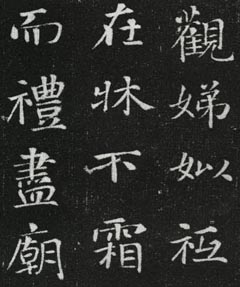 觀娣姒祗
在牀不霜
而禮盡廟